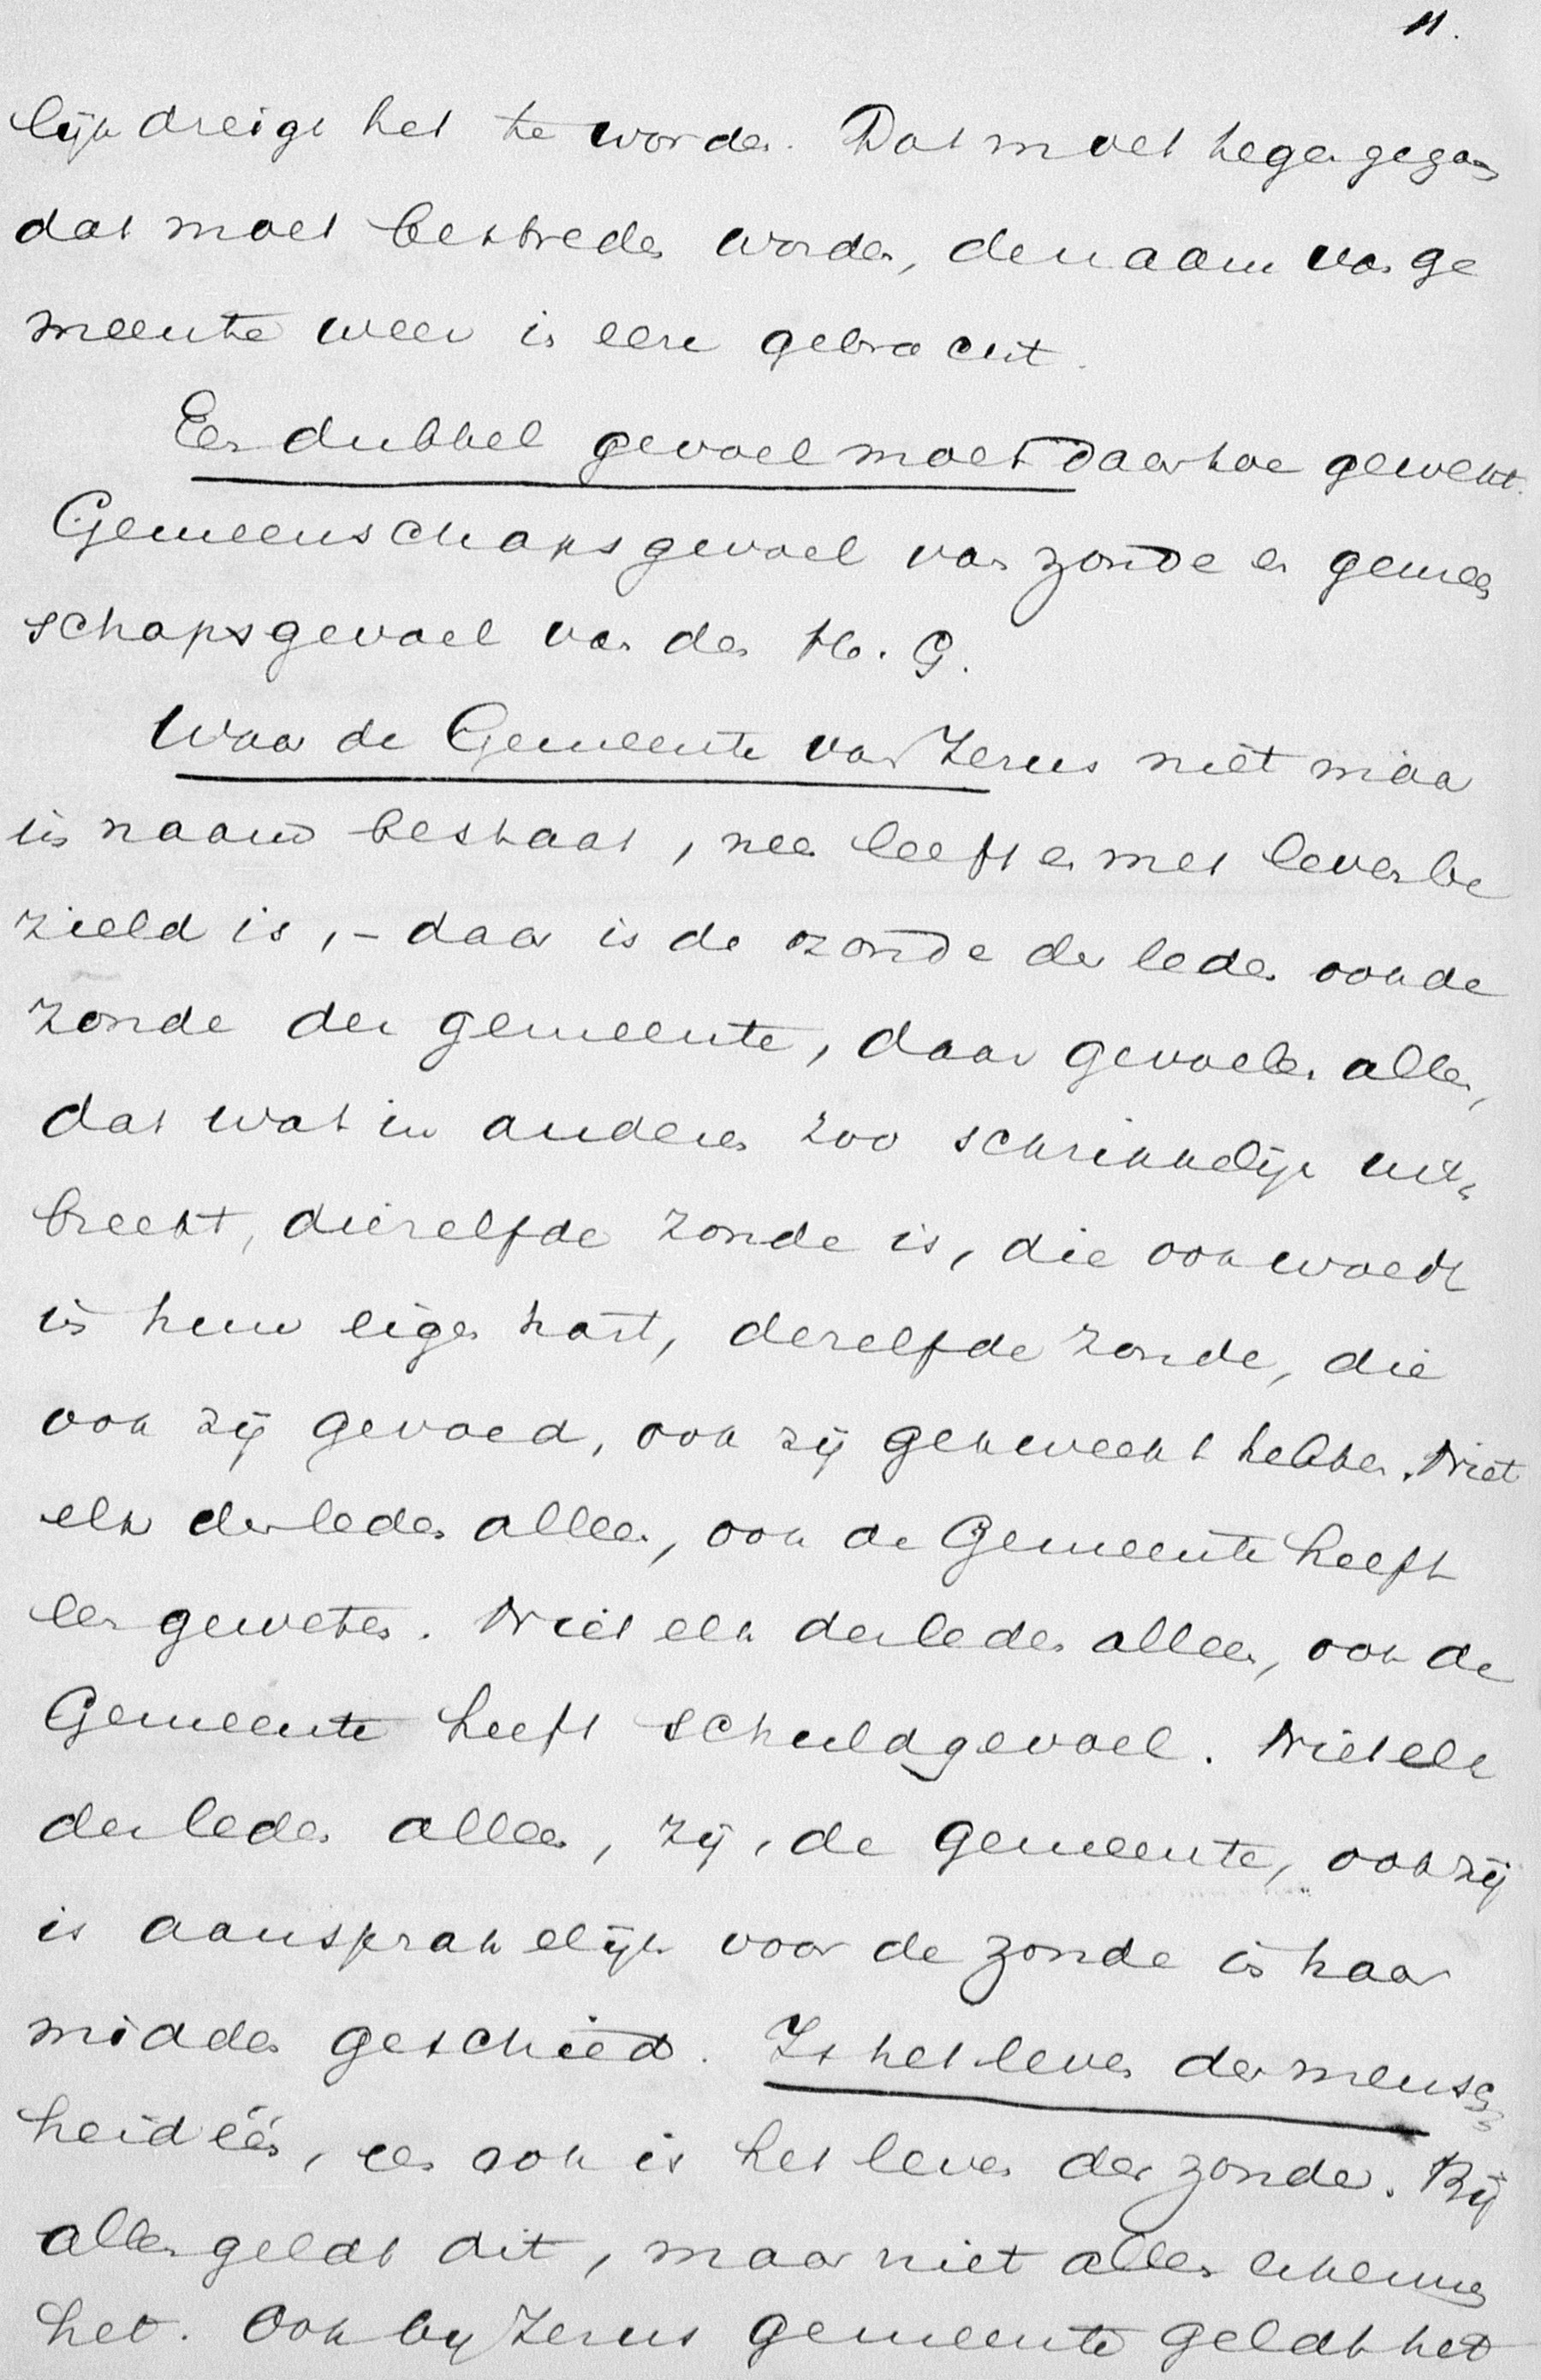 11.
lijk dreigt het te worden. Dat moet tegengegaan
dat moet bestreden worden, de naam van ge
meente weer in eere gebracht.
Een dubbel gevoel moet daartoe gewekt.
Gemeenschapsgevoel van zonde en gemeen
schapsgevoel van den H. G.
Waar de Gemeente van Jezus niet maar
in naam bestaat, neen leeft en met leven be
zield is, - daar is de zonde der leden ook de
zonde der gemeente, daar gevoelen allen,
dat wat in anderen zoo schrikkelijk uit
breekt, diezelfde zonde is, die ook woedt
in hun eigen hart, dezelfde zonde, die
ook zij gevoed, ook zij gekweekt hebben. Niet
elk der leden alleen, ook de Gemeente heeft
een geweten. Niet elk der leden alleen, ook de
Gemeente heeft schuldgevoel. Niet elk
der leden alleen, zij, de gemeente, ook zij
is aansprakelijk voor de zonde in haar
midden geschied. Is het leven der mensch
heid één, een ook is het leven der zonde. Bij
allen geldt dit, maar niet allen erkennen
het. Ook bij Jezus gemeente geldt het